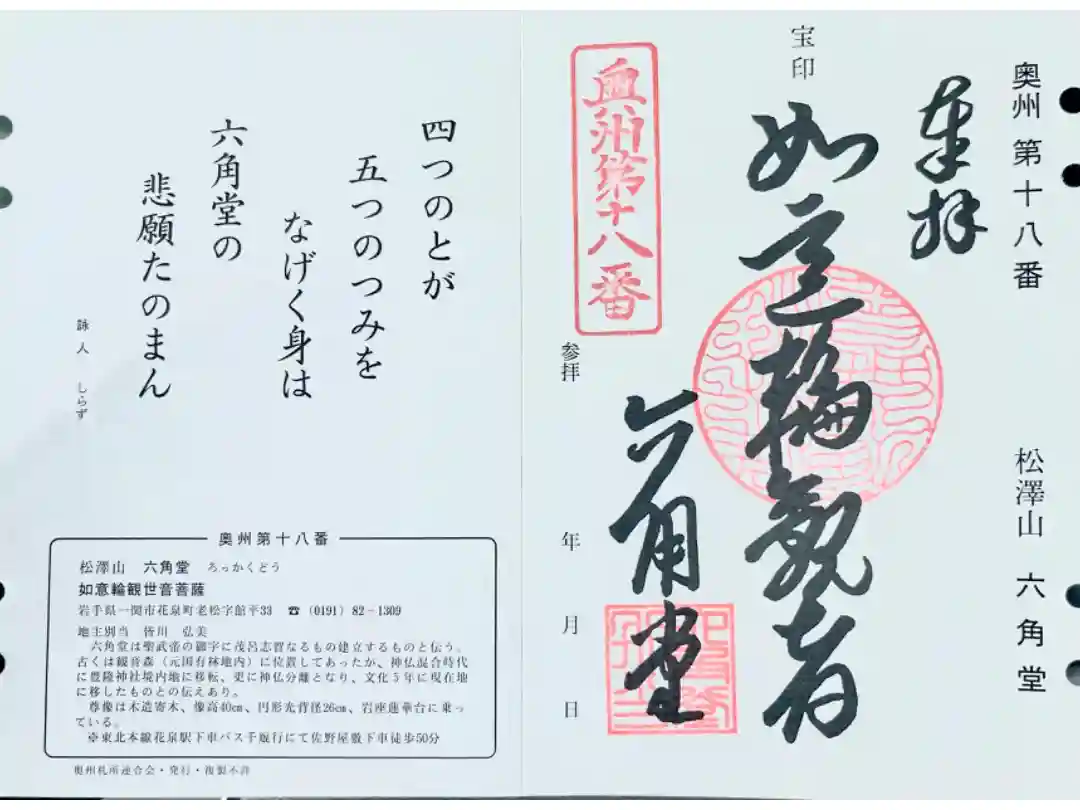 奥州第十八番　松澤山　六角堂
奉拝
宝印
如意輪観音
奥州第十八番
参拝　年　月　日
六角堂
四つのとが
五つのつみを
なげく身は
六角堂の
悲願たのまん
詠人　しらず
奥州第十八番
松澤山　六角堂　ろっかくどう
如意輪観世音菩薩
岩手県一関市花泉町老松字館平33　☎（0191）82－1309
地主別当　皆川　弘美
六角堂は聖武帝の御字に茂呂志習なるもの建立するものと伝う。
古くは観音森（元国有林地内）に位置してあったが、神仏混合時代
に豊隆神社境内地に移転、更に神仏分離となり、文化5年に現在地
に移したものとの伝えあり。
尊像は木造寄木、像高40㎝、円形光背径26㎝、岩座蓮華台に乗っ
ている。
※東北本線花泉駅下車バス千厩行にて佐野屋敷下車徒歩50分
奥州札所連合会・発行・複製不許